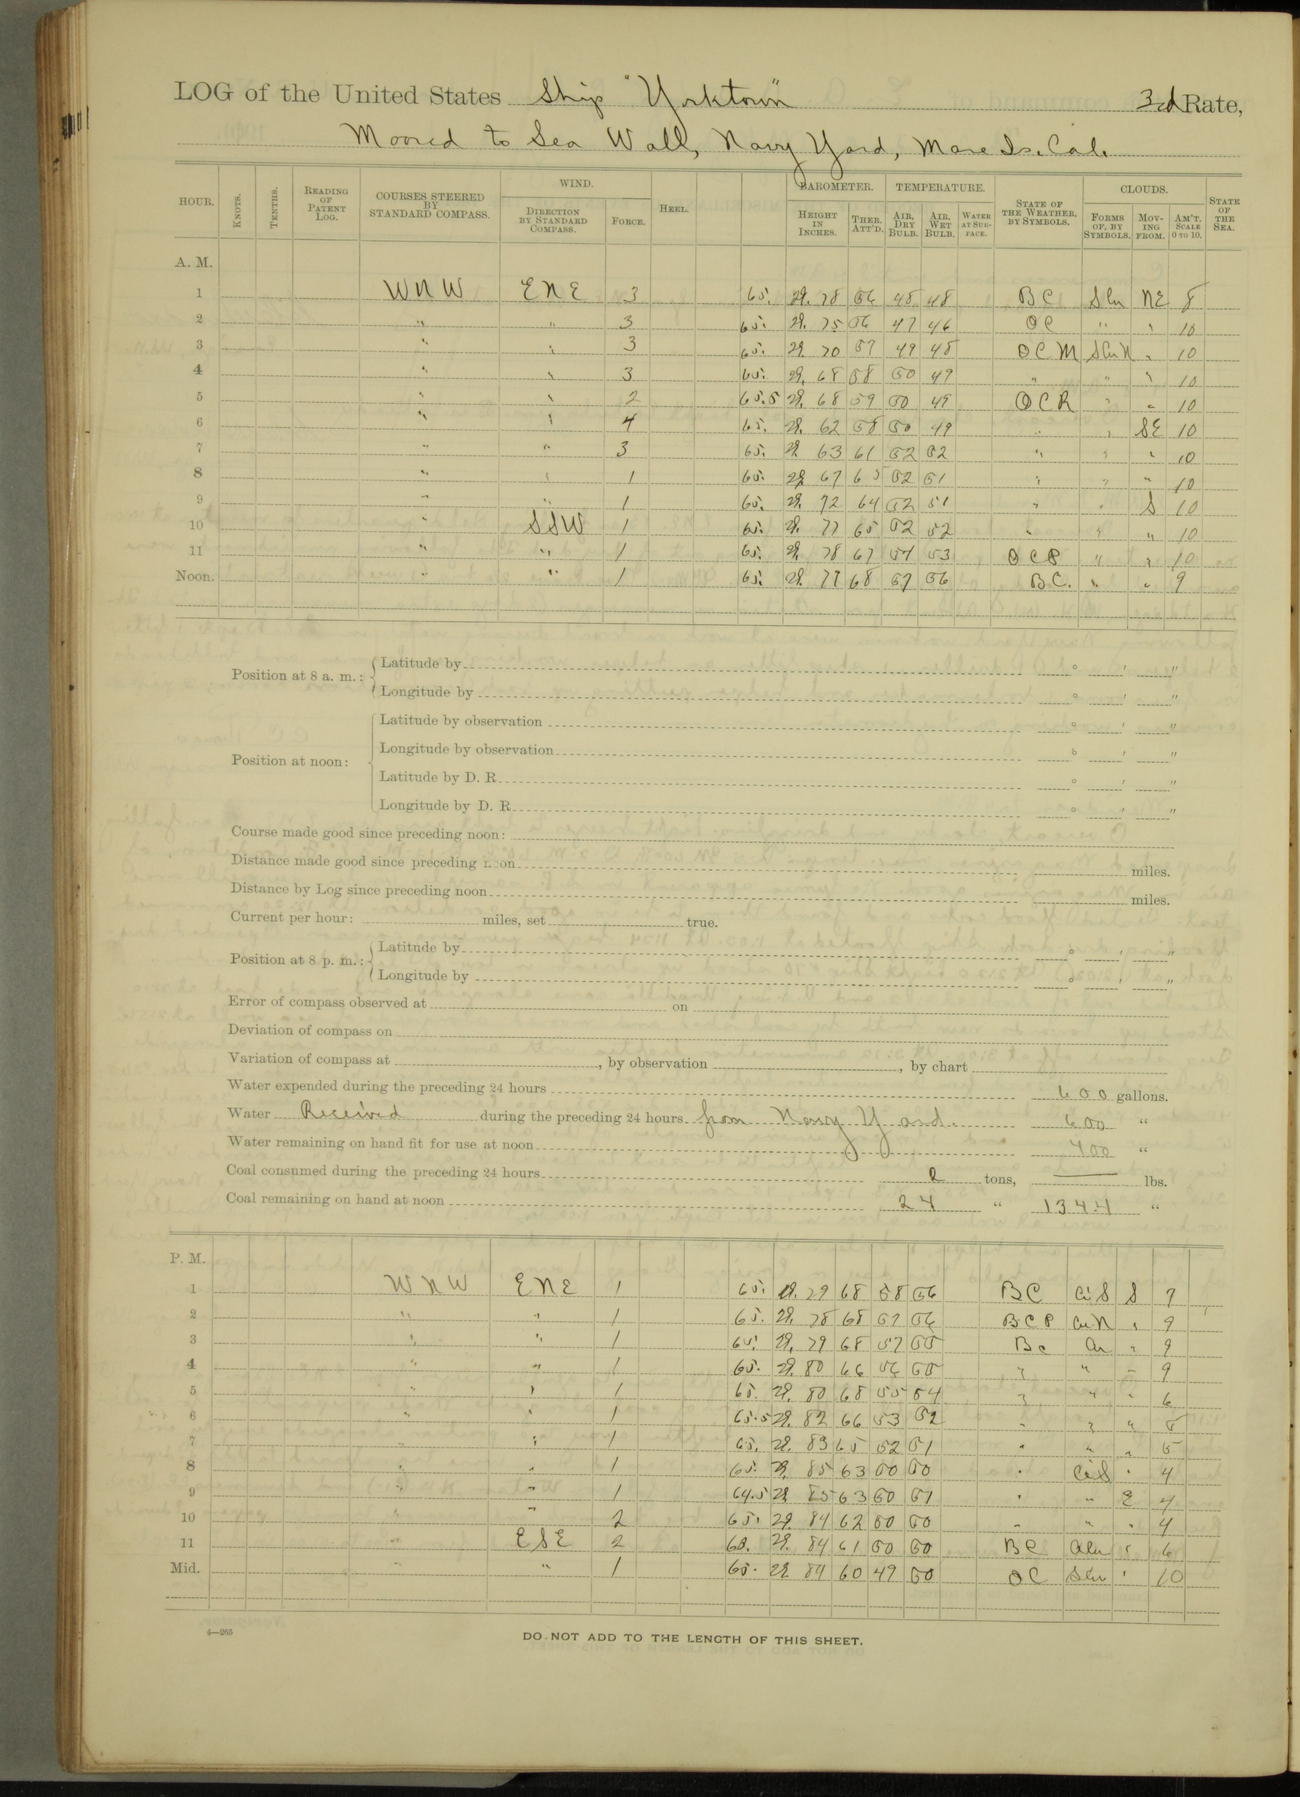 LOG of the United States Ship "Yorktown" 3rd Rate,
Moored to Sea Wall, Navy Yard, Mare Is. Cal.
HOUR. KNOTS. TENTHS. READING OF PATENT LOG. COURSES STEERED BY STANDARD COMPASS. WIND. DIRECTION BY STANDARD COMPASS. FORCE. HEEL. BAROMETER. HEIGHT IN INCHES. THER. ATT'D. TEMPERATURE. AIR, DRY BULB. AIR, WET BULB. WATER AT SURFACE. STATE OF THE WEATHER, BY SYMBOLS. CLOUDS. FORMS OF, BY SYMBOLS. MOVING FROM. AM'T. SCALE 0 TO 10. STATE OF THE SEA.
A. M.
1 WNW ENE 3 65. 29. 78 56 48 48 BC SCu NE 8
2 " " 3 65. 29. 75 56 47 46 OC " " 10
3 " " 3 65. 29 70 57 49 48 OCM SCuN " 10
4 " " 3 65. 29. 68 58 50 49 " " " 10
5 " " 2 65.5 29. 68 59 50 49 OCR " " 10
6 " " 4 65. 29. 62 58 50 49 " " SE 10
7 " " 3 65. 29 63 61 52 52 " " " 10
8 " " 1 65. 29 67 65 52 51 " " " 10
9 " " 1 65. 29. 72 64 52 51 " " S 10
10 " SSW 1 65. 29. 77 65 52 52 " " " 10
11 " " 1 65. 29. 78 67 54 53 OCP " " 10
Noon. " " 1 65. 29. 77 68 57 56 BC. " " 9
Position at 8 a. m.: Latitude by ° ' "
Longitude by ° ' "
Position at noon: Latitude by observation ° ' "
Longitude by observation ° ' "
Latitude by D. R. ° ' "
Longitude by D. R. ° ' "
Course made good since preceding noon:
Distance made good since preceding noon miles.
Distance by Log since preceding noon miles.
Current per hour: miles, set true.
Position at 8 p. m.: Latitude by ° ' "
Longitude by ° ' "
Error of compass observed at on
Deviation of compass on
Variation of compass at , by observation , by chart
Water expended during the preceding 24 hours 600 gallons.
Water Received during the preceding 24 hours from Navy Yard. 600 "
Water remaining on hand fit for use at noon 400 "
Coal consumed during the preceding 24 hours 2 tons, — lbs.
Coal remaining on hand at noon 24 " 1344 "
P. M.
1 WNW ENE 1 65. 29. 79 68 58 56 BC CiS S 7
2 " " 1 65. 29. 78 68 57 56 BCP CuN " 9
3 " " 1 65. 29. 79 68 57 55 Bc Cu " 9
4 " " 1 65. 29. 80 66 56 55 " " " 9
5 " " 1 65. 29. 80 68 55 54 " " " 6
6 " " 1 65.5 29. 82 66 53 52 " " " 5
7 " " 1 65. 29. 83 65 52 51 " " " 5
8 " " 1 65. 29. 85 63 50 50 " CiS " 4
9 " " 1 64.5 29 85 63 50 51 " " E 4
10 " " 2 65. 29. 84 62 50 50 " " " 4
11 " ESE 2 29. 84 61 50 50 BC " 6
Mid. " " 1 65. 29. 84 60 49 50 OC SCu " 10
4—265
DO NOT ADD TO THE LENGTH OF THIS SHEET.